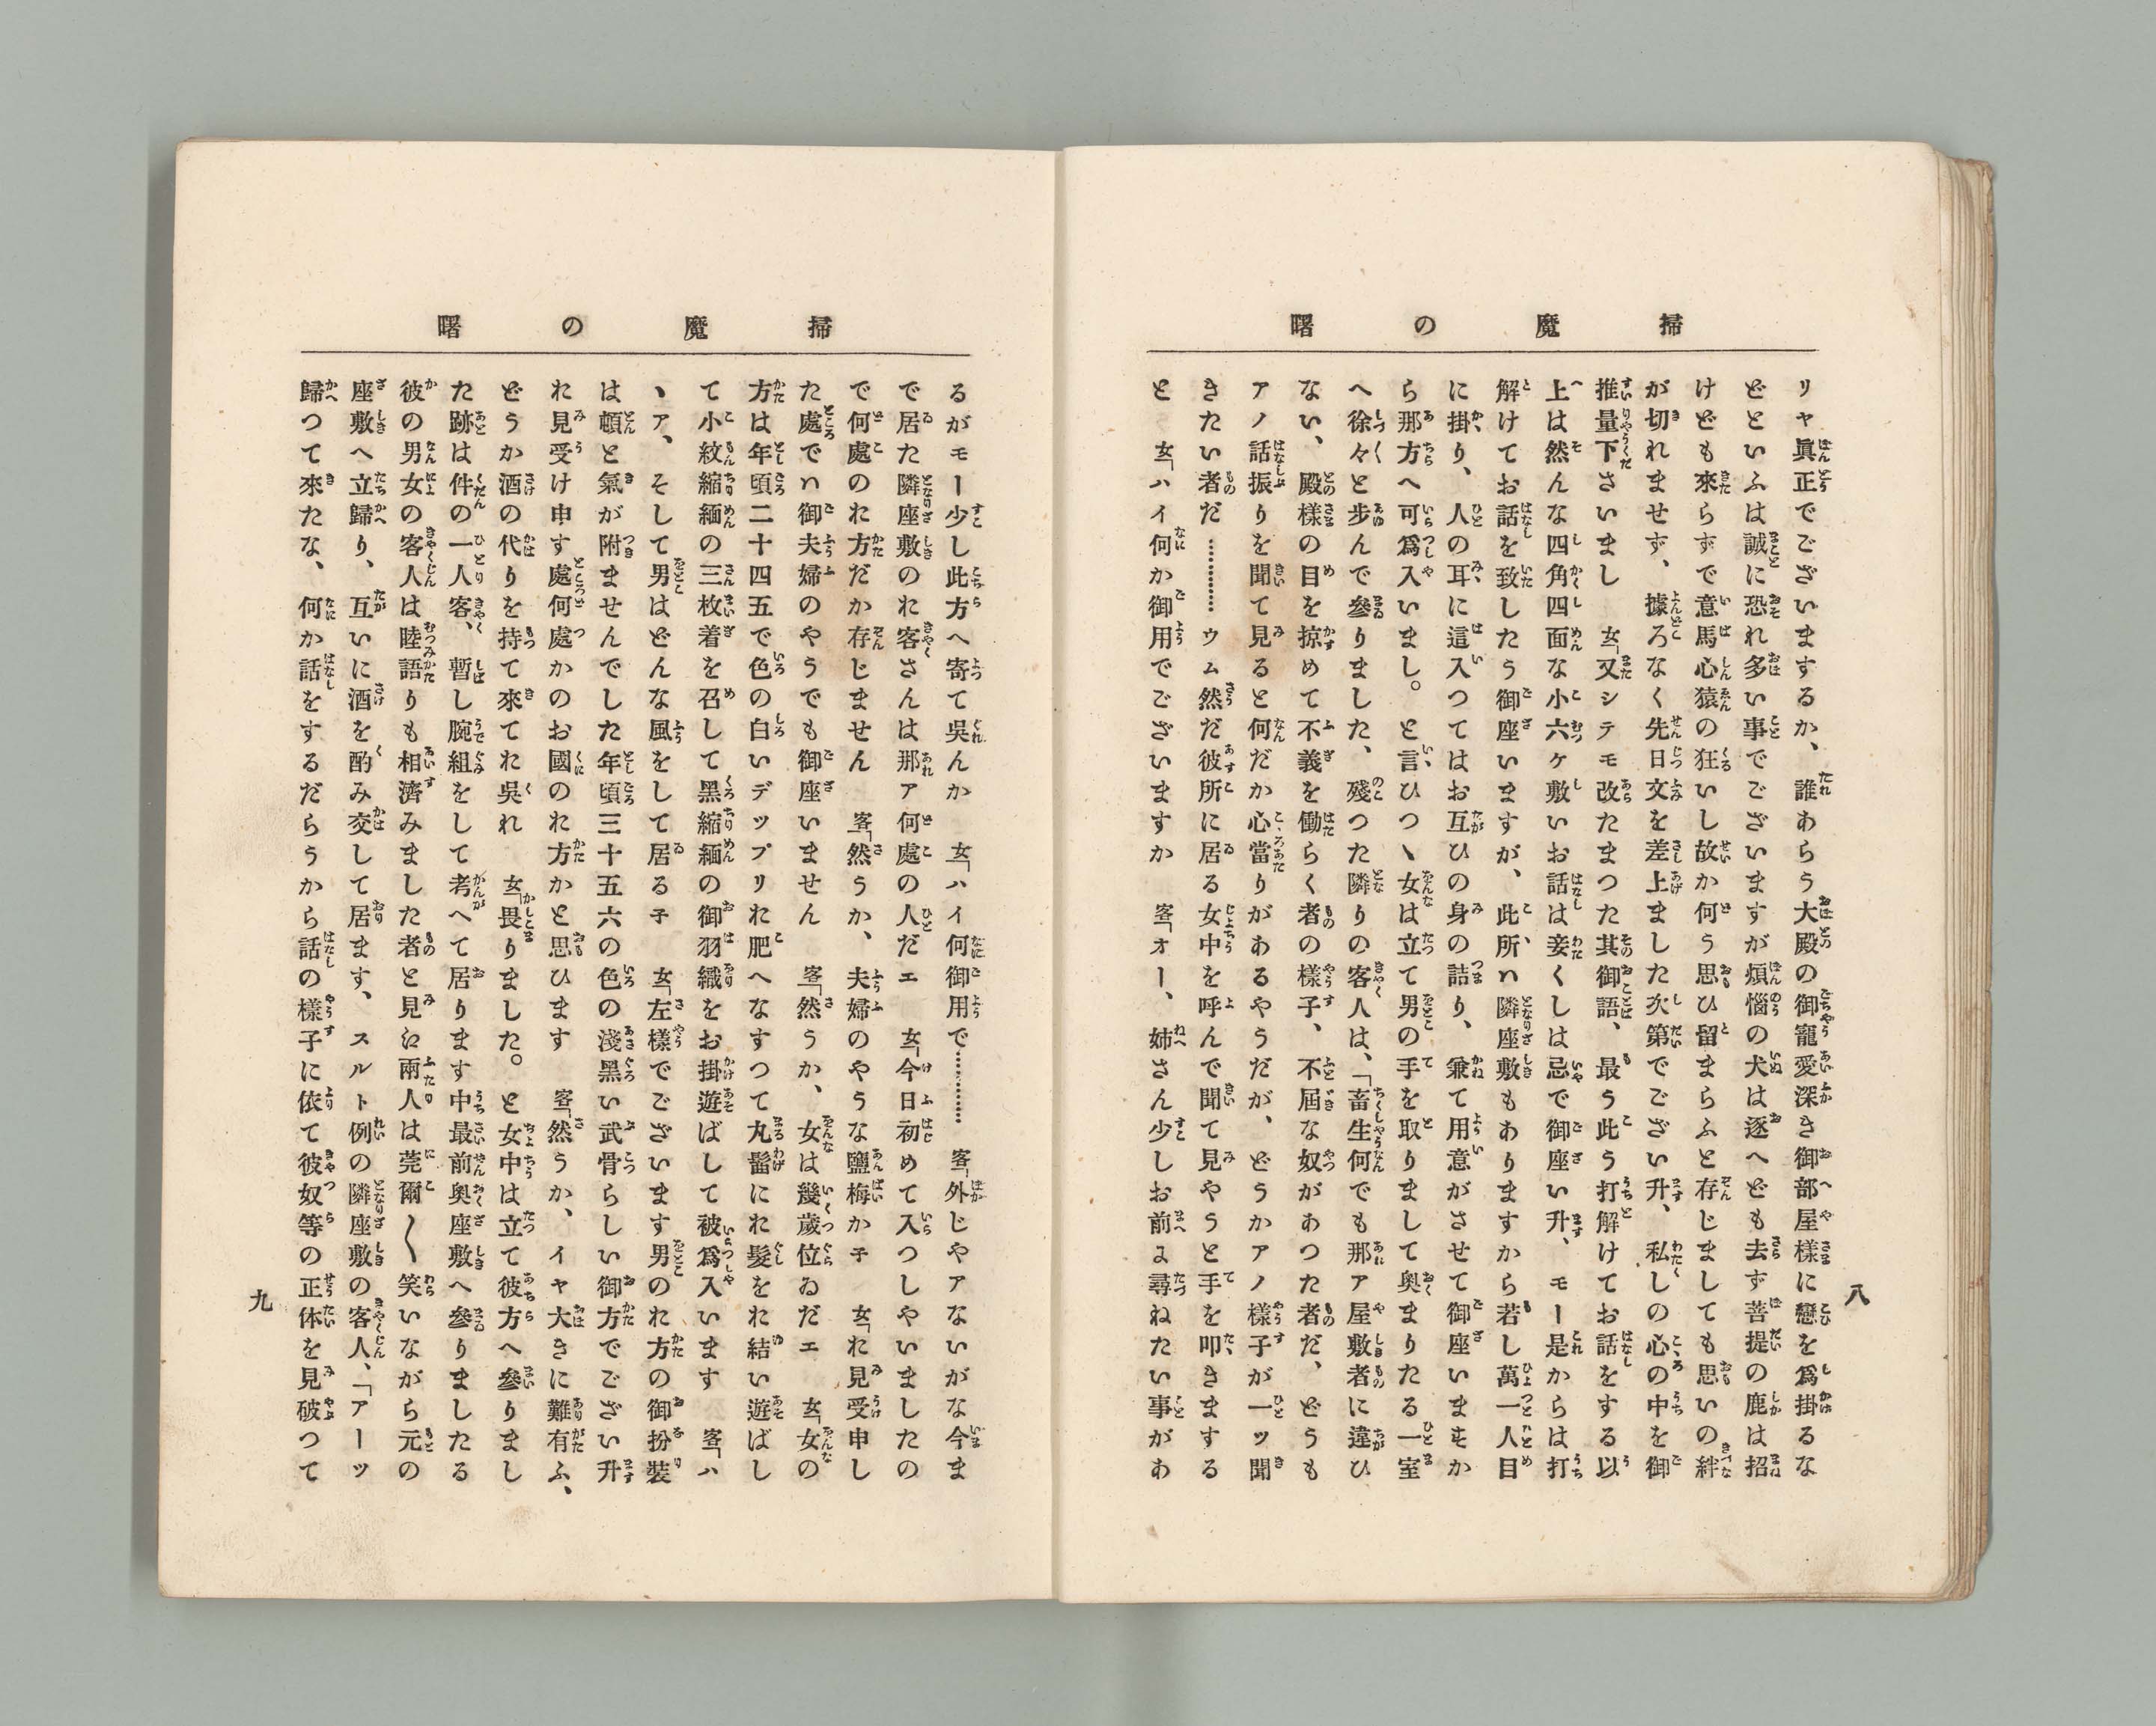 掃魔の曙
リャ眞正でございまするか、誰あらう大殿の御寵愛深き御部屋様に戀を爲掛るな
どといふは誠に恐れ多い事でございますが煩惱の犬は逐へども去ず菩提の鹿は招
けども來らずで意馬心猿の狂いし故か何う思ひ留まらふと存じましても思いの絆
が切れませず、據ろなく先日文を差上ました次第でござい升、私しの心の中を御
推量下さいまし　女「又シテモ改たまつた其御語、最う此う打解けてお話をする以
上は然んな四角四面な小六ヶ敷いお話は妾くしは忌で御座い升、モー是からは打
解けてお話を致したう御座いますが、此所ハ隣座敷もありますから若し萬一人目
に掛り、人の耳に這入つてはお互ひの身の詰り、兼て用意がさせて御座いますか
ら那方へ可爲入いまし。と言ひつヽ女は立て男の手を取りまして奥まりたる一室
へ徐々と歩んで參りました、殘つた隣りの客人は、「畜生何でも那ア屋敷者に違ひ
ない、殿様の目を掠めて不義を働らく者の様子、不屆な奴があつた者だ、どうも
アノ話振りを聞て見ると何だか心當りがあるやうだが、どうかアノ様子が一ッ聞
きたい者だ…………ウム然だ彼所に居る女中を呼んで聞て見やうと手を叩きまする
と　女「ハイ何か御用でございますか　客「オー、姉さん少しお前ヱ尋ねたい事があ
八
掃魔の曙
るがモー少し此方へ寄て呉んか　女「ハイ何御用で…………　客「外じやアないがな今ま
で居た隣座敷のれ客さんは那ア何處の人だエ　女「今日初めて入つしやいましたの
で何處のれ方だか存じません　客「然うか、夫婦のやうな鹽梅かネ　女「れ見受申し
た處でハ御夫婦のやうでも御座いません　客「然うか、女は幾歳位ゐだエ　女「女の
方は年頃二十四五で色の白いデップリれ肥へなすつて丸髷にれ髮をれ結い遊ばし
て小紋縮緬の三枚着を召して黒縮緬の御羽織をお掛遊ばして被爲入います　客「ハ
ヽア、そして男はどんな風をして居るネ　女「左様でございます男のれ方の御扮裝
は頓と氣が附ませんでした年頃三十五六の色の淺黒い武骨らしい御方でござい升
れ見受け申す處何處かのお國のれ方かと思ひます　客「然うか、イヤ大きに難有ふ、
どうか酒の代りを持て來てれ呉れ　女「畏りました。と女中は立て彼方へ參りまし
た跡は件の一人客、暫し腕組をして考へて居ります中最前奥座敷へ參りましたる
彼の男女の客人は睦語りも相濟みました者と見ヱ兩人は莞爾〳〵笑いながら元の
座敷へ立歸り、互いに酒を酌み交して居ます、スルト例の隣座敷の客人、「アーッ
歸つて來たな、何か話をするだらうから話の様子に依て彼奴等の正体を見破つて
九